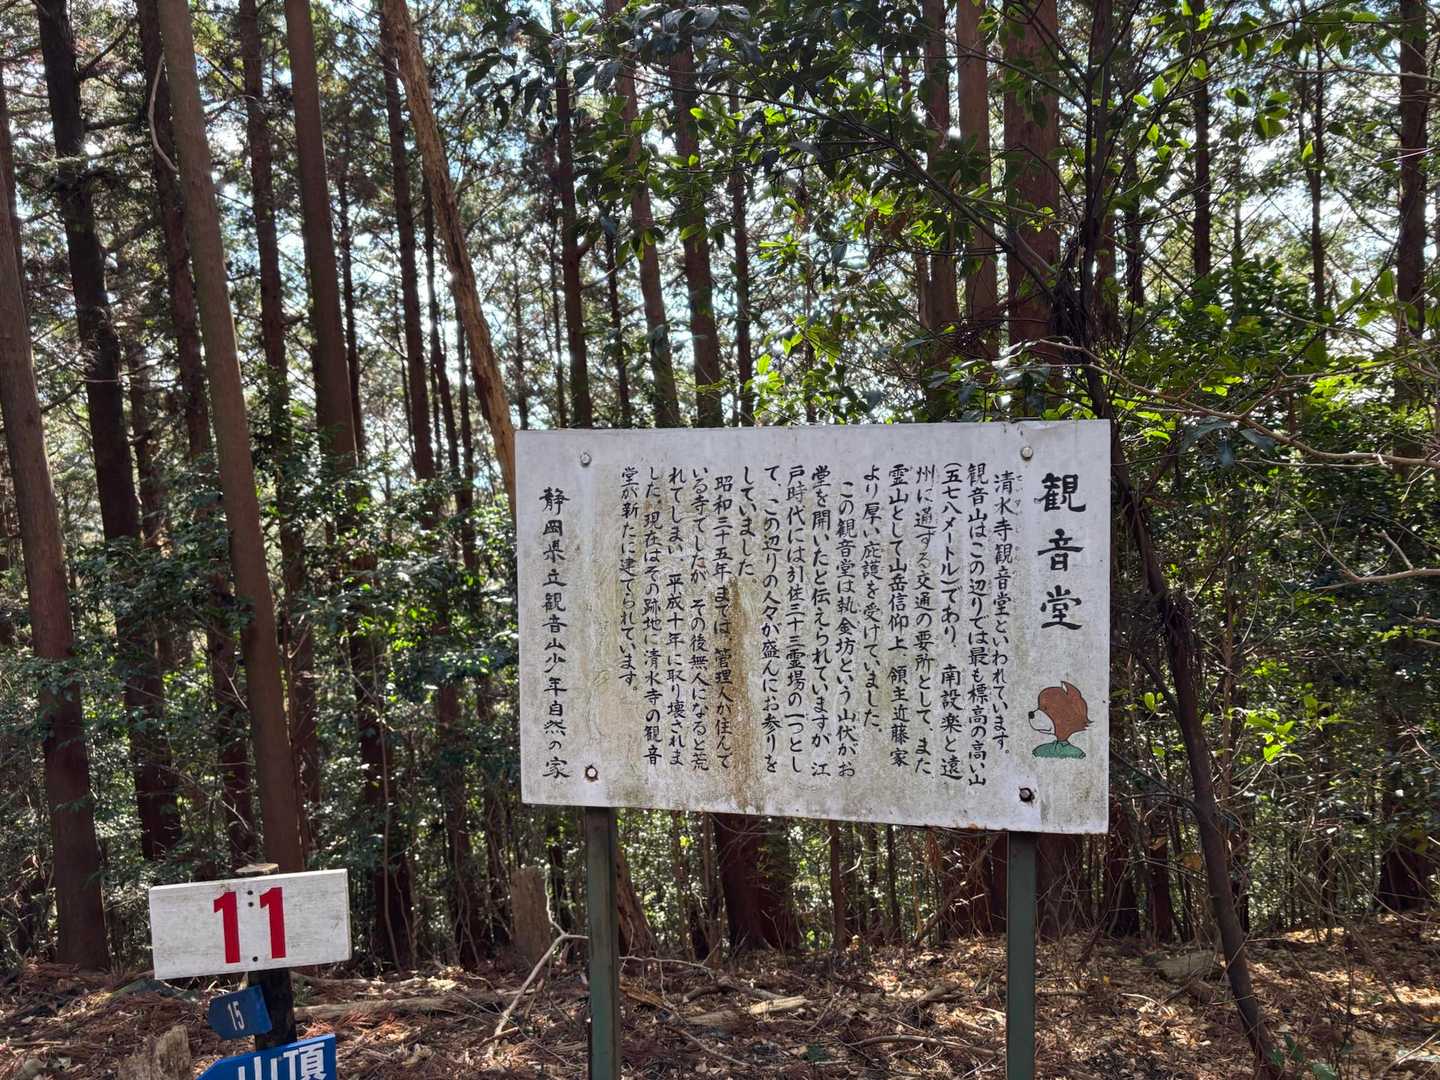 観音堂
清水寺観音堂といわれています。
観音山はこの辺りでは最も標高の高い山
(五七八メートル)であり、南設楽と遠
州に通する交通の要所として、また
霊山として山岳信仰上 領主近藤家
より厚い庇護を受けていました。
この観音堂は執金坊という山伏がお
堂を開いたと伝えられていますが、江
戸時代には引佐三十三霊場の一つとし
て、この辺りの人々が盛んにお参りを
していました
昭和三十五年までは、管理人が住んで
いる寺でしたが、その後無人になると荒
れてしまい、平成十年に取り壊されま
した。現在はその跡地に清水寺の観音
堂が新たに建てられています。
静岡県立観音山少年自然の家
11
15
山頂